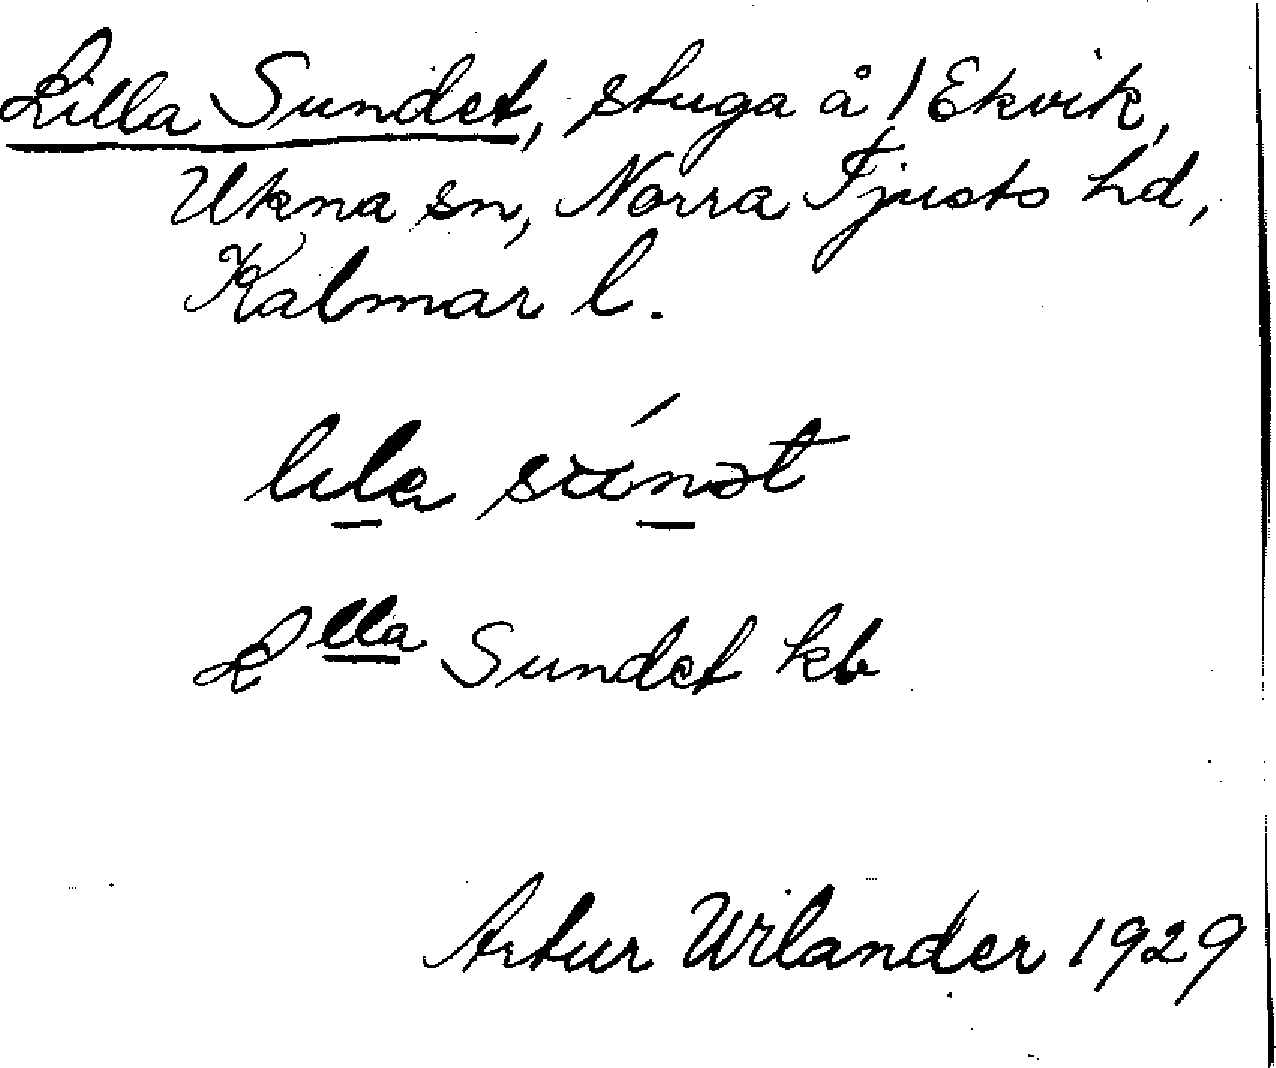 Lilla Sundet, stuga å 1 Ekvik,
Ukna sn, Norra Tjusts hd,
Kalmar l.
lila
Llla Sundet kb
Artur Wilander 1929